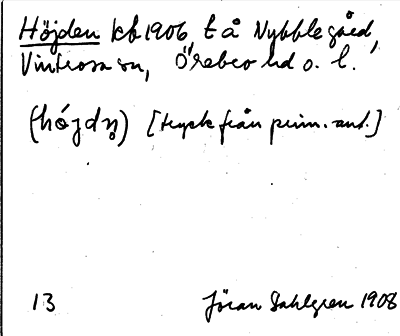 Höjden kb 1906, t å Nybble gård,
Vintrosa sn, Örebro hd o. l.
(hǿjdn̥) [tryck från prim. ant.]
13 Jöran Sahlgren 1908